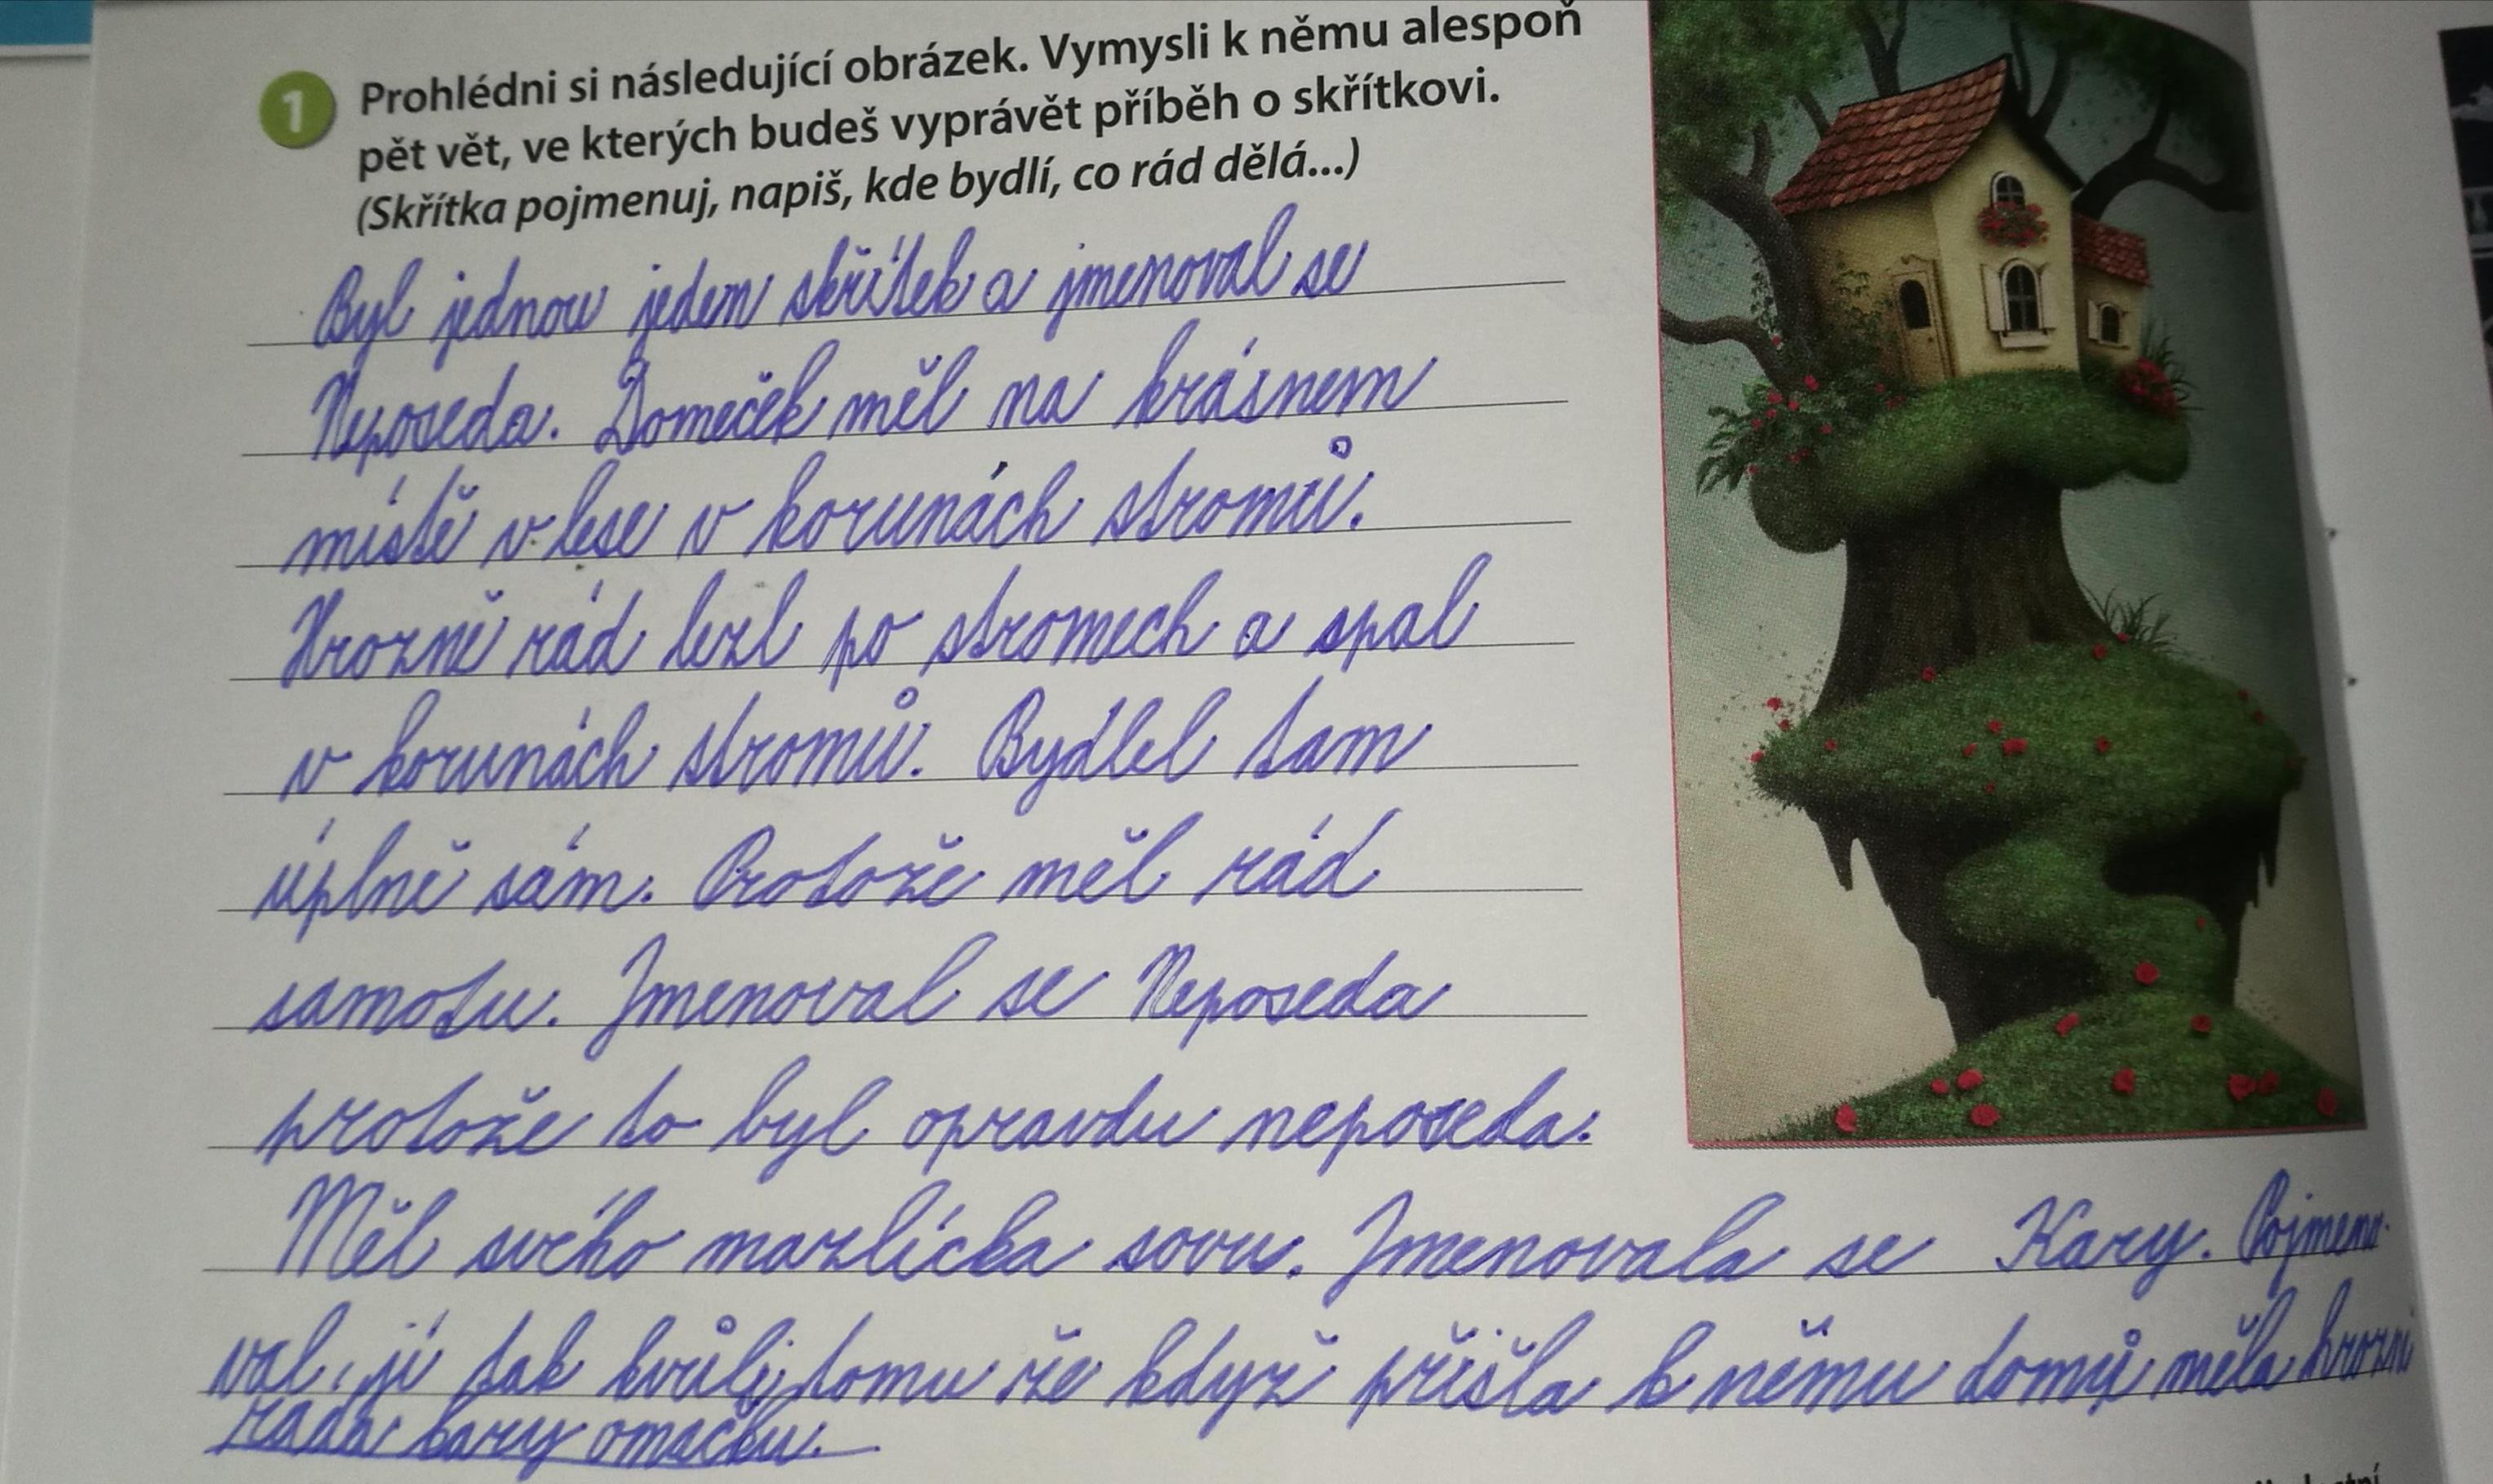 1 Prohlédni si následující obrázek. Vymysli k němu alespoň
pět vět, ve kterých budeš vyprávět příběh o skřítkovi.
(Skřítka pojmenuj, napiš, kde bydlí, co rád dělá...)
Byl jednou jeden skřítek a jmenoval se
Neposeda. Domeček měl na krásnem
místě v lese v korunách stromů.
Hrozně rád lezl po stromech a spal
v korunách stromů. Bydlel tam
úplně sám. Protože měl rád
samotu. Jmenoval se Neposeda
protože to byl opravdu neposeda.
Měl svého mazlíčka sovu. Jmenovala se Kary. Pojmeno-
val jí tak kvůli tomu že když přišla k němu domů měla hrozně
ráda kary omačku.